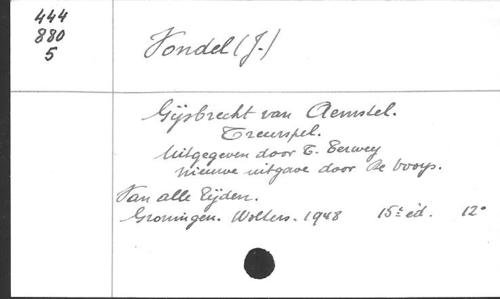 444
880
5
Vondel (J.)
Gijsbrecht van Aemstel.
Treurspel.
Uitgegeven door T. Terwey
nieuwe uitgave door de Vooys.
Van alle Tijden.
Groningen. Wolters. 1948 15e éd. 12°